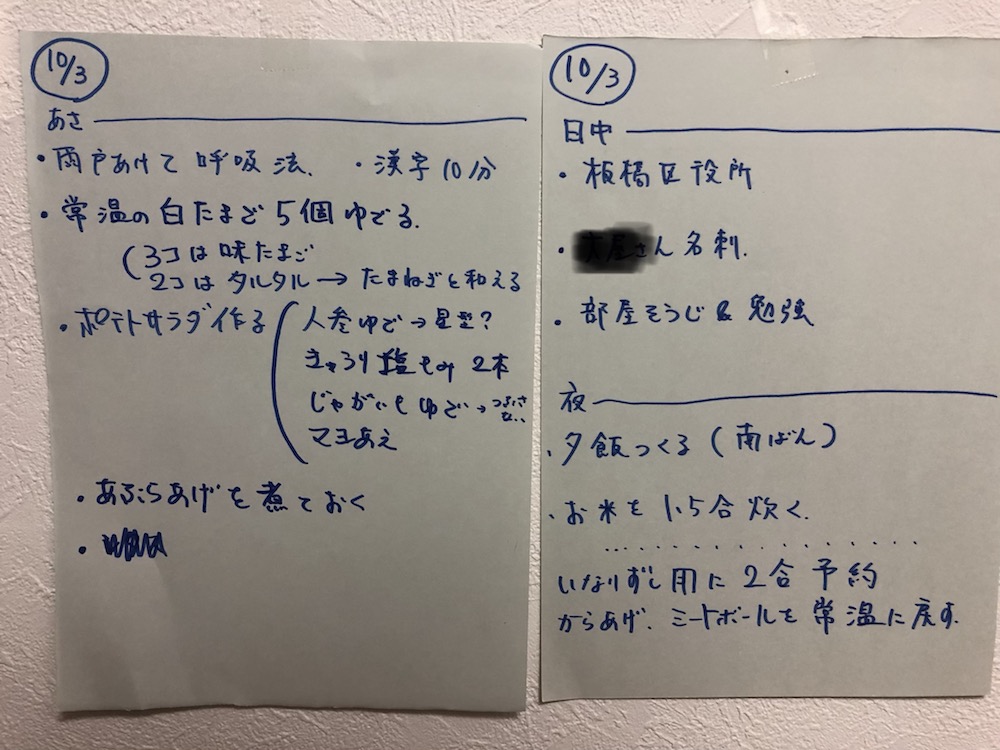 10/3
あさ
・雨戸あけて呼吸法. ・漢字10分
・常温の白たまご5個ゆでる.
(3コは味たまご
2コはタルタル→たまねぎと和える
・ポテトサラダ作る
人参ゆで→星型?
きゅうり塩もみ 2本
じゃがいもゆで→つぶさない
マヨあえ
・あぶらあげを煮ておく
・
10/3
日中
・板橋区役所
・さん名刺.
・部屋そうじ&勉強
夜
・夕飯つくる(南ばん)
・お米を1.5合炊く.
いなりずし用に2合予約
からあげ.ミートボールを常温に戻す.